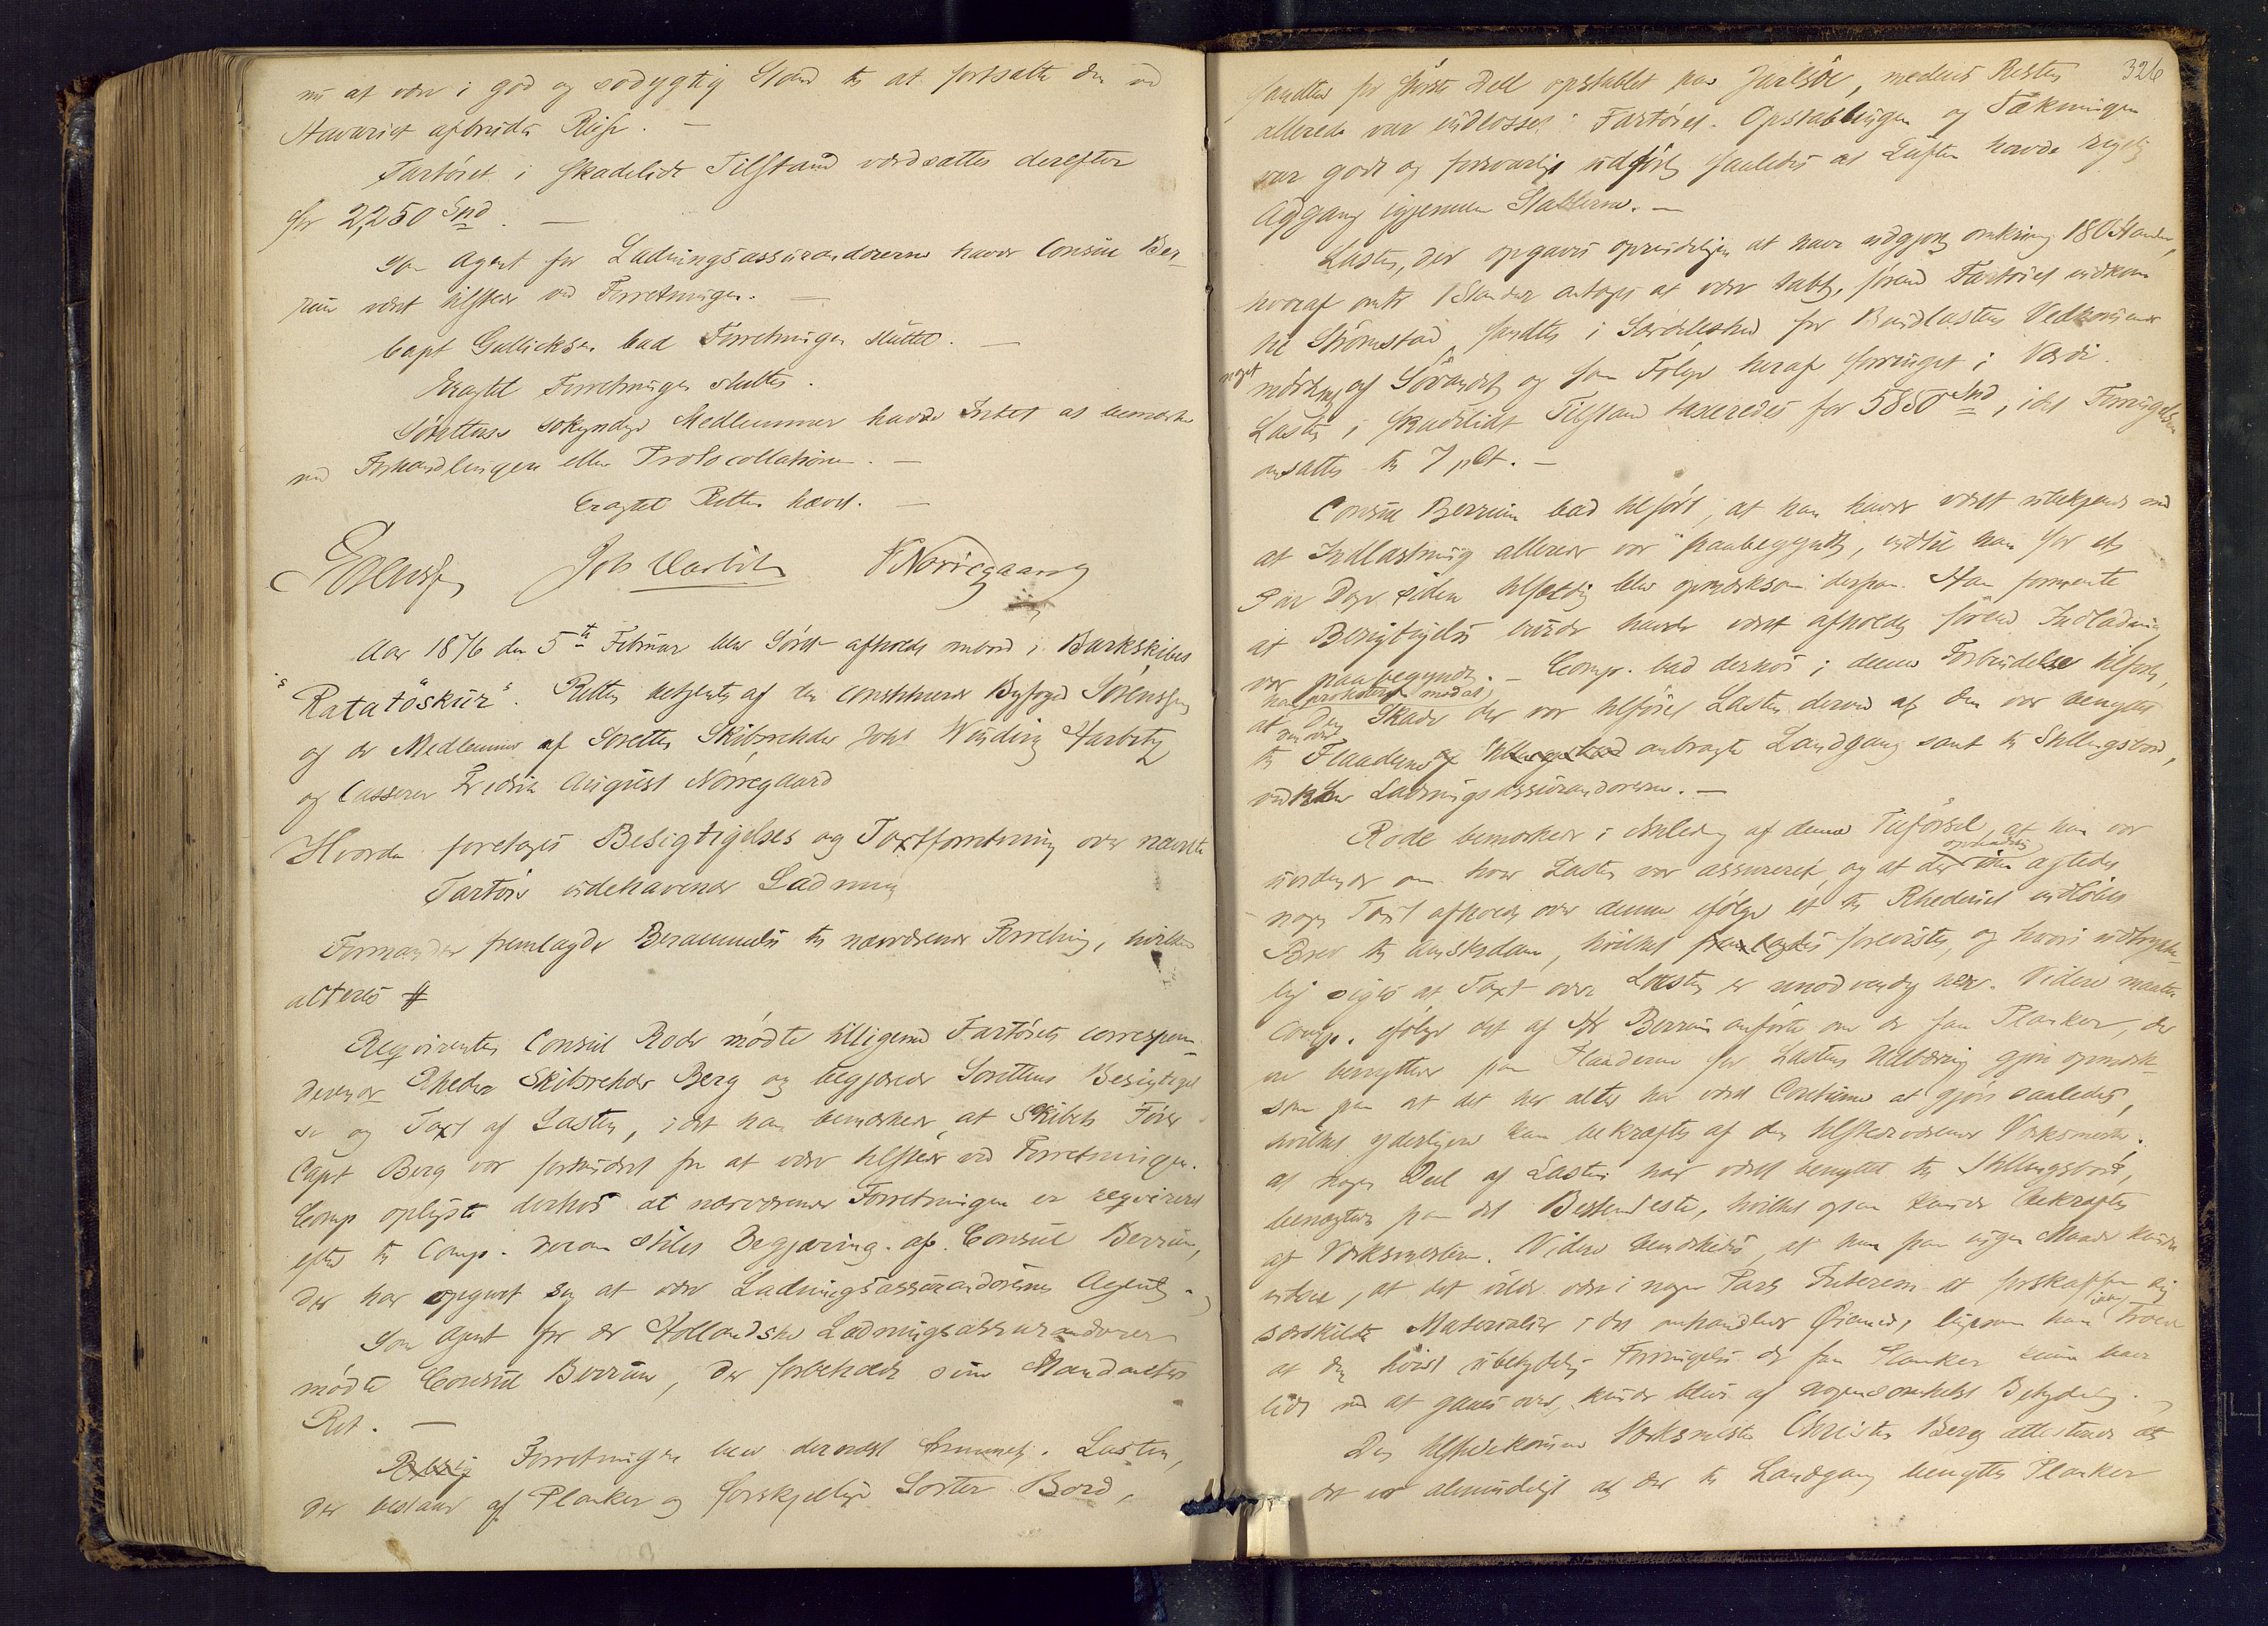 nu at være i god og sødygtig Stand til at fortsætte den ved
Havariet afbrudte Reise. —
Fartöiet i skadelidt Tilstand værdsattes derefter
for 2,250 Spd. —
Som Agent for Ladningsassurandörerne havde Consul Ber-
rum været tilstede ved Forretningen. —
Capt Gullicksen bad Forretningen sluttet. —
Eragtet Forretningen sluttes.
Sörettens sökyndige Medlemmer havde Intet at bemærke
ved Forhandlingen eller Protocollationen. —
Eragtet Retten hævet. —
Joh Harbitz FNörregaard
Aar 1876 den 5te Februar blev Söret afholdt ombord i Barkskibet
"Ratatöskur". Retten betjentes af den constituerede Byfoged Sörenssen
og de Medlemmer af Söretten Skibsrheder Johs Winding Harbitz
og Casserer Fredrik August Nörregaard
Hvorda foretoges Besigtigelses og Taxtforretning over nævnte
Fartöis indehavende Ladning
Formanden fremlagde Berammelse til nærværende Forretning, hvilken
acteres #
Reqvirenten Consul Rode mödte tilligemed Fartöiets correspon-
derende Rheder Skibsrheder Berg og begjærede Sörettens Besigtigel
se og Taxt af Lasten, idet han bemærkede, at Skibets Förer
Capt Berg var forhindret fra at være tilstede ved Forretningen.
Comp oplyste derhos at nærværende Forretningen er reqvireret
efter til Comp. derom stilet Begjæring af Consul Berrum,
der har opgivet sig at være Ladningsassurandörernes Agent. —
Som Agent for de Hollandske Ladningsassurandörer
mödte Consul Berrum, der forbeholdt sine Mandanters
Ret. —
Forretningen blev dernæst fremmet. Lasten,
der bestaar af Planker og forskjellige Sorter Bord,
326
fandtes for störste Deel opstablet paa Jielsöe, medens Resten
allerede var indlosset i Fartöiet. Opstablingen og Tækningen
var godt og forsvarligt udfört saaledes at Luften havde rigelig
Adgang igjennem Stablerne. —
Lasten, der opgaves oprindeligen at have udgjort omkring 180 Stander,
hvoraf omtr 1 Stander antoges at være tabt, förend Fartöiet indkom
til Strömstad, fandtes i Særdeleshed for Bundlastens Vedkommende
noget mörknet af Sövandet og som Fölge heraf forringet i Værdi.
Lasten i skadelidt Tilstand taxeredes for 5850 Spd, idet Forringelsen
ansattes til 7 pCt. —
Consul Berrum bad tilfört, at han havde været ubekjendt med
at Indlastning allerede var paabegyndt, indtil han for et
Par Dage siden tilfældig blev opmærksom derpaa. Han formente
at Besigtigelse burde havde været afholdt förend Indladning
var paabegyndt. — Comp. bad derhos i denne Forbindelse tilfört,
han protesterede mod at
at den Skade der var tilföiet Lasten derved at den var benyttet
til Flaaderne anbragte Landgang samt til Stillingsbord,
vedkom Ladningsassurandörerne. —
Rode bemærkede i Anledning af denne Tilförsel, at han var
uvidende om hvor Lasten var assureret, og at der ikke agtedes
noget Taxt afholdt over denne ifölge et til Rhederiet indlöbet
Brev fra Amsterdam, hvilket forevistes, og hvori udtrykke-
lig siges, at Taxt over Lasten er unödvendig her. Videre maatte
Comp. ifölge det af Hr Berrum anförte om de faa Planker, der
ere benyttede paa Flaaderne for Lastens Udbæring gjöre opmærk-
som paa at det her altid har været Coutume at gjöre saaledes,
hvilket yderligere kan bekræftes af den tilstedeværende Værksmester;
at nogen Deel af Lasten har været benyttet til Stillingsbord,
benægtede han det Bestemteste, hvilket ogsaa kunde bekræftes
af Værksmesteren. Videre bemærkedes, at han paa ingen Maade kunde
indsee, at det vilde være i nogen Parts Interesse at forskaffe sig
særskilte Materialier i det omhandlede Öiemed, ligesom han ikke troede
at den höist ubetydelige Forringelse de faa Planker kunde have
lidt ved at gaaes over, kunde blive af nogensomhelst Betydning. —
Den tilstedekomne Værksmester Christen Berg attesterede at
det er almindeligt at der til Landgang benyttes Planker